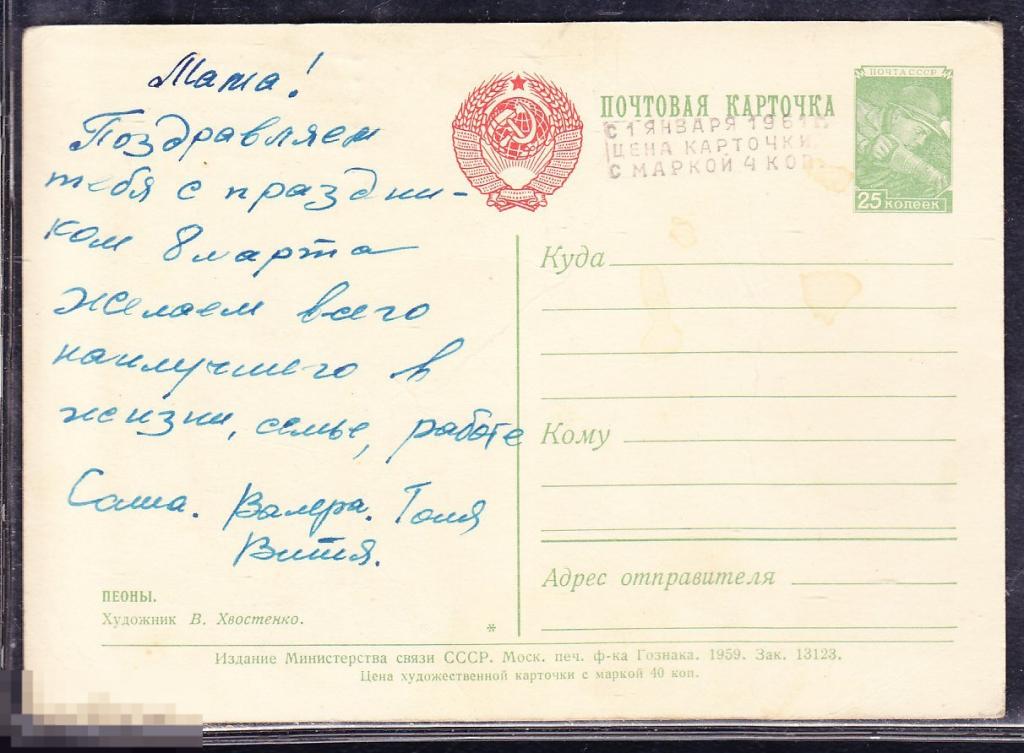 Мама!
Поздравляем
тебя с праздни-
ком 8 марта
Желаем всего
наилучшего в
жизни, семье, работе
Саша. Валера. Толя
Витя.
ПЕОНЫ.
Художник В. Хвостенко.
*
ПОЧТОВАЯ КАРТОЧКА
С 1 ЯНВАРЯ 1961 г.
ЦЕНА КАРТОЧКИ
С МАРКОЙ 4 КОП.
ПОЧТА СССР
25 копеек
Куда
Кому
Адрес отправителя
Издание Министерства связи СССР. Моск. печ. ф-ка Гознака. 1959. Зак. 13123.
Цена художественной карточки с маркой 40 коп.